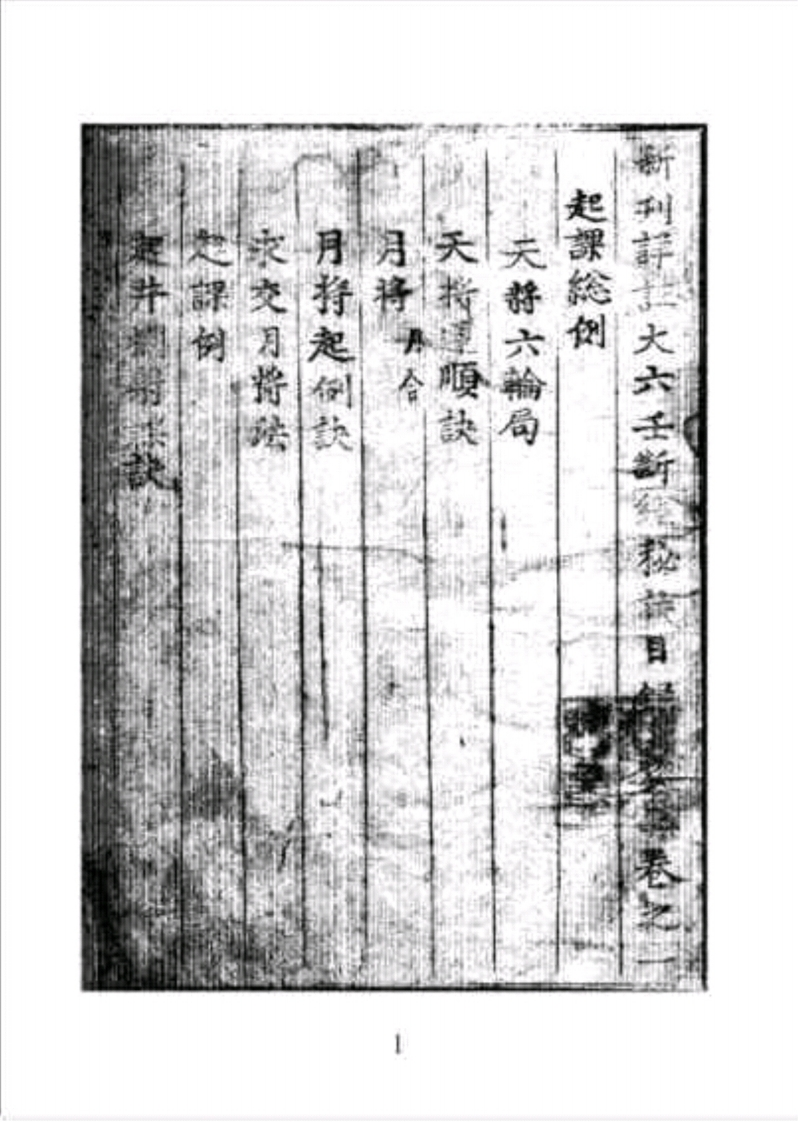 新刊詳註大六壬斷經秘訣目錄卷之一
起課総例
天將六輪局
天將逆順訣
月將 月合
月将起例訣
求交月将法
起課例
起井射課訣
1